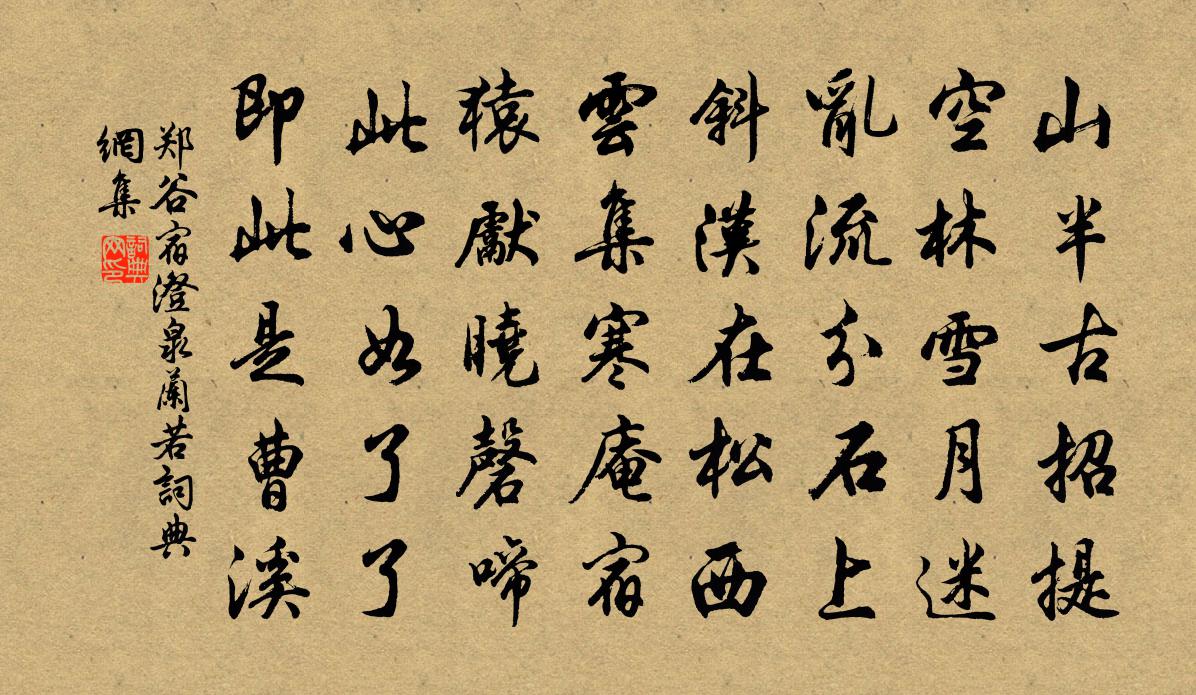 山半古招提
空林雪月迷
亂流分石上
斜漢在松西
雲集寒庵宿
猿獻曉磬啼
此心如了了
即此是曹溪
郑谷宿澄泉蘭若詞典
網集
詞典
网印